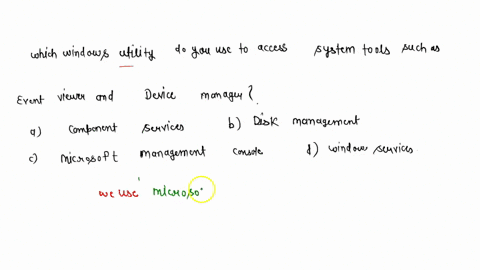 which windows utility do you use to access system tools such as
Event viewer and Device manager?
a) Component services b) Disk management
c) microsoft management console d) window services
we use microso